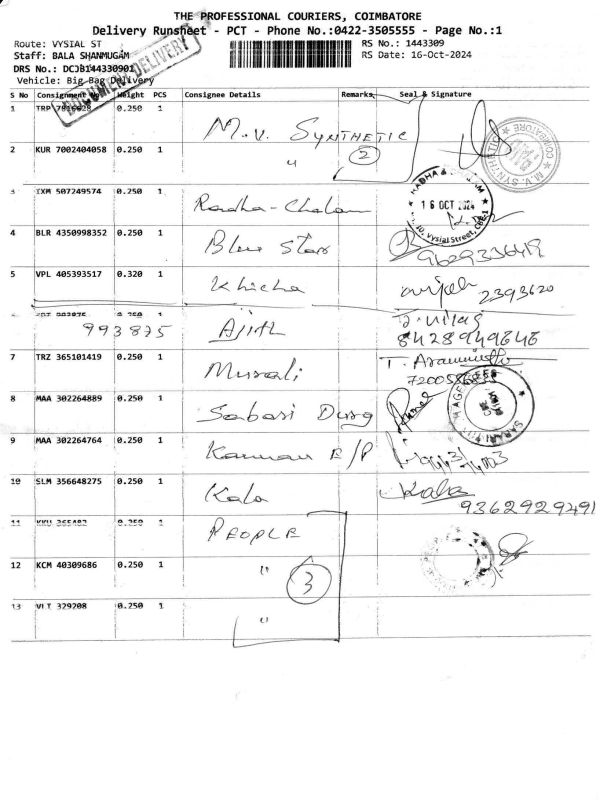 THE PROFESSIONAL COURIERS, COIMBATORE
Delivery Runsheet - PCT - Phone No.:0422-3505555 - Page No.:1
Route: VYSIAL ST
RS No.: 1443309
Staff: BALA SHANMUGAM
RS Date: 16-Oct-2024
DRS No.: DCJB144330901
Vehicle: Big Bag Delivery
DOCUMENT DELIVERY
S No Consignment No Weight PCS Consignee Details Remarks Seal & Signature
1 TRP 0.250 1 M.V. SYNTHETIC
2 KUR 7002404058 0.250 1 " 2
M.V. SYNTHETIC COIMBATORE
3 IXM 507249574 0.250 1 Radha-Chalam
16 OCT 2024
Vysial Street,
4 BLR 4350998352 0.250 1 Blue Star
9629336419
5 VPL 405393517 0.320 1 Khicha 2393620
993875 Ajith
8428949646
7 TRZ 365101419 0.250 1 Murali
8 MAA 302264889 0.250 1 Sabari Durg
9 MAA 302264764 0.250 1 Kannan E/P
10 SLM 356648275 0.250 1 Kala Kala
9362929491
11 KKU 365482 0.250 1 PEOPLE
12 KCM 40309686 0.250 1 " 3
13 VLT 329208 0.250 1 "